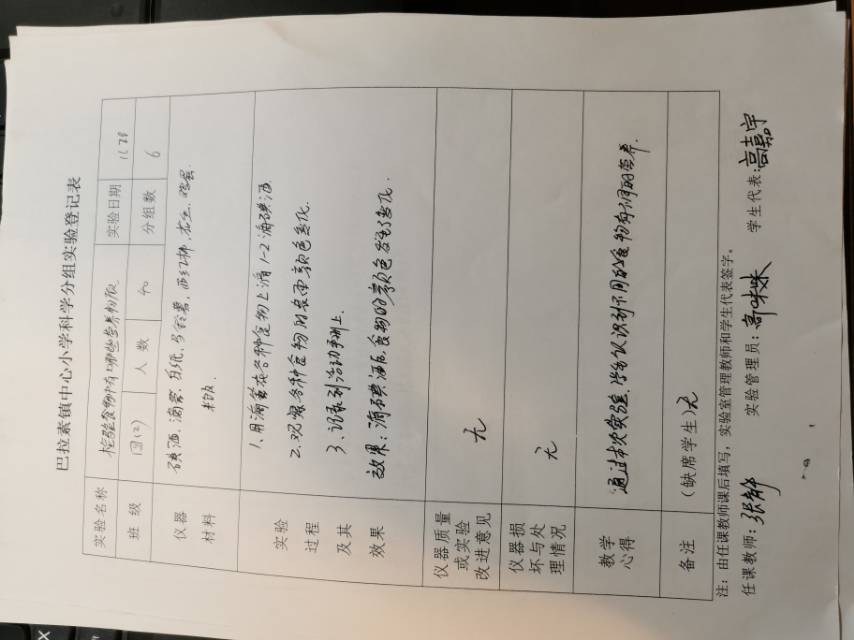 巴拉素镇中心小学科学分组实验登记表
实验名称 检验食物中有哪些营养物质 实验日期 11.28
班级 四(2) 人数 40 分组数 6
仪器材料 碘酒、滴管、白纸、马铃薯、西红柿、花生、
实验过程及其效果
1、用滴管在各种食物上滴1-2滴碘酒
2、观察各种食物的表面颜色变化.
3、记录到活动手册上.
效果:滴碘酒后食物的颜色发生了变化.
仪器质量或实验改进意见 无
仪器损坏与处理情况 无
教学心得 通过本次实验,学生认识到不同的食物有不同的营养.
备注 (缺席学生)无
注:由任课教师课后填写,实验室管理教师和学生代表签字。
任课教师:张静 实验管理员: 学生代表:高嘉宇